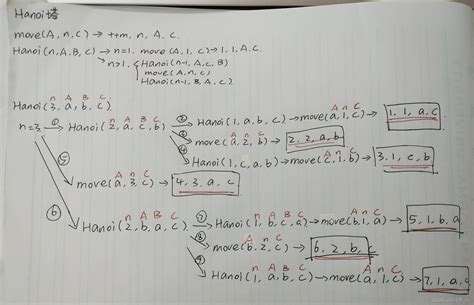 Hanoi塔
move(A, n, C) → ++m, n, A, C.
Hanoi(n, A, B, C) → n=1. move (A, 1, C) → 1, 1, A, C.
n>1. Hanoi(n-1, A, C, B)
move(A, n, C)
Hanoi(n-1, B, A, C)
n A B C
Hanoi(3, a, b, c)
n=3 ① Hanoi(2, a, c, b)
n A B C
② Hanoi(1, a, b, c) → move(a, 1, c) → 1, 1, a, c
A n C
③ move(a, 2, b) → 2, 2, a, b
④ Hanoi(1, c, a, b) → move(c, 1, b) → 3, 1, c, b
A n C
⑤ move(a, 3, c) → 4, 3, a, c
A n C
⑥ Hanoi(2, b, a, c)
n A B C
⑦ Hanoi(1, b, c, a) → move(b, 1, a) → 5, 1, b, a
n A B C A n C
⑧ move(b, 2, c) → 6, 2, b, c
A n C
⑨ Hanoi(1, a, b, c) → move(a, 1, c) → 7, 1, a, c
n A B C A n C